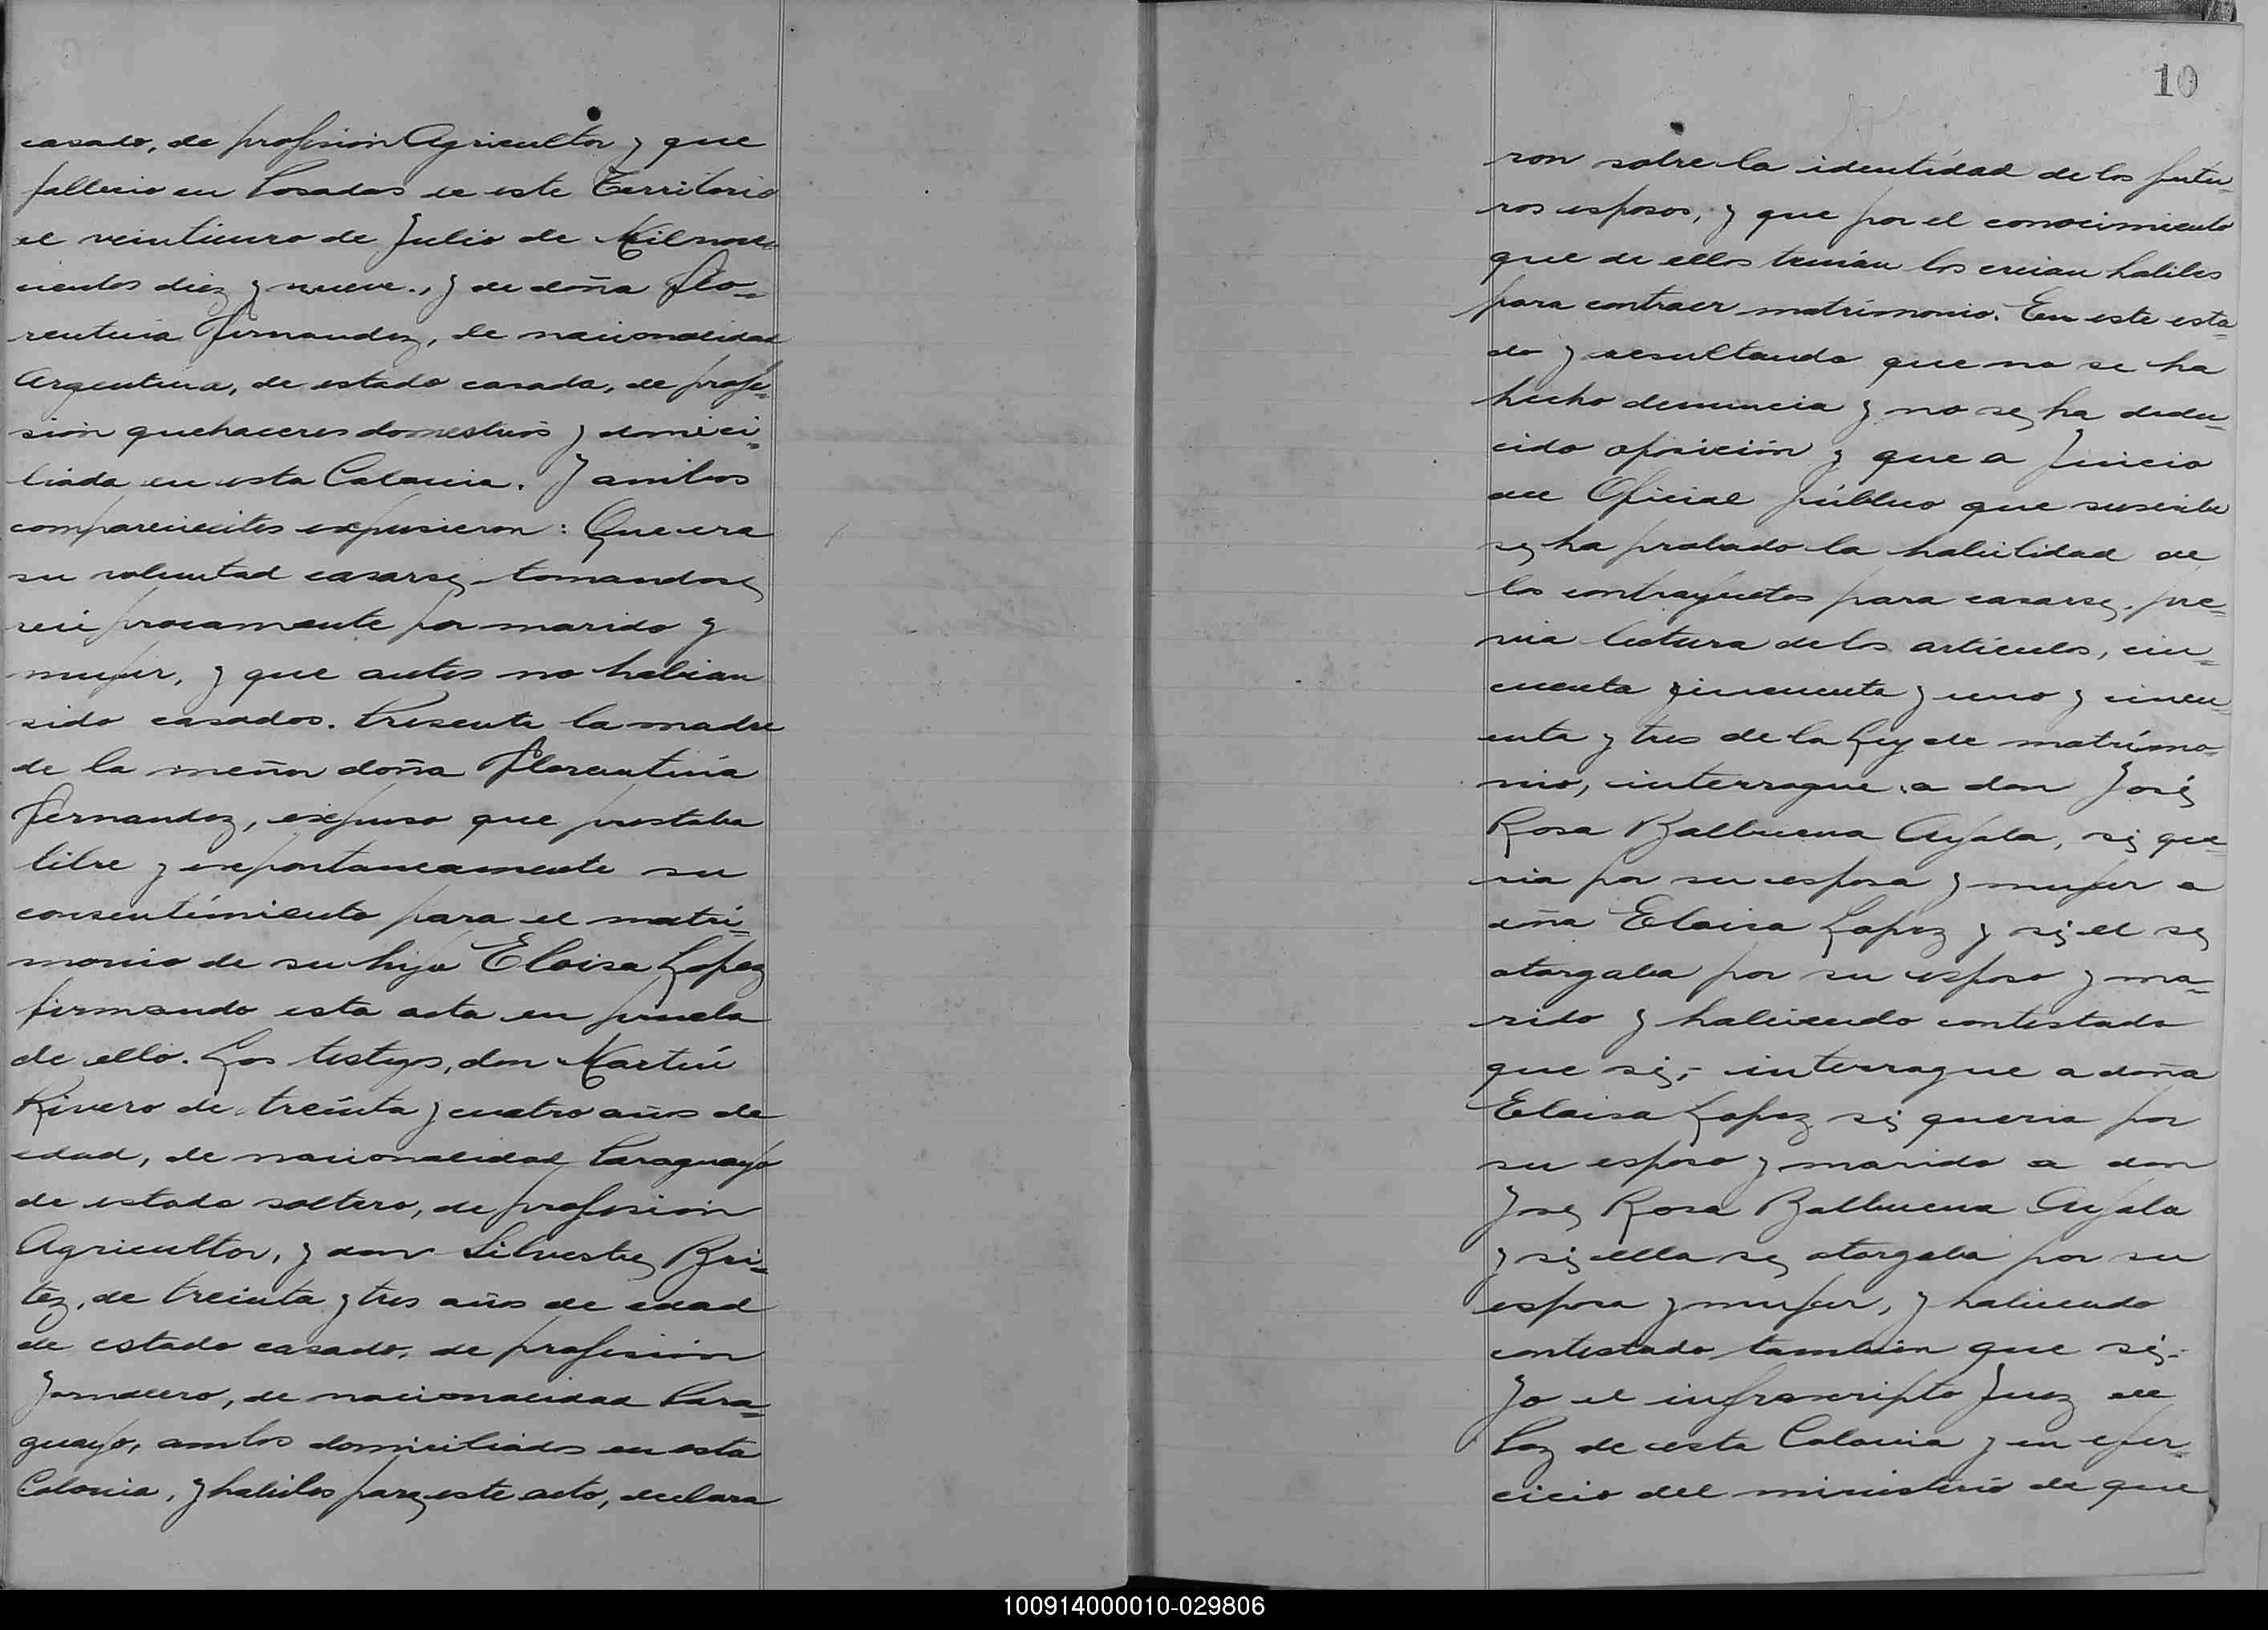 casado, de profesión Agricultor y que
fallecio en Posadas de este Territorio
el veinticuro de Julio de Milnove-
cientos diez y nueve., y de doña Flo-
rentina Fernandez, de nacionalidad
Argentina, de estado casada, de profe-
sión quehaceres domesticos y domici-
liada en esta Colonia. Y ambos
comparecientes expusieron: Que era
su voluntad casarse, tomandose
reciprocamente por marido y
mujer, y que antes no habian
sido casados. Presente la madre
de la menor doña Florentina
Fernandez, expuso que prestaba
libre y expontaneamente su
consentimiento para el matri-
monio de su hija Eloisa Lopez
firmando esta acta en prueba
de ello. Los testigos, don Martín
Rivero de treinta y cuatro años de
edad, de nacionalidad Paraguayo
de estado soltero, de profesion
Agricultor, y don Silvestre Bri-
tez, de treinta y tres años de edad
de estado casado, de profesion
Jornalero, de nacionalidad Para-
guayo, ambos domiciliados en esta
Colonia, y habiles para este acto, declara
10
ron sobre la identidad de los futu-
ros esposos, y que por el conocimiento
que de ellos tenían los creian habiles
para contraer matrimonio. En este esta-
do y resultando que no se ha
hecho denuncia y no se ha dedu-
cido oposición y que a Juicio
del Oficial público que suscribe
se ha probado la habilidad de
los contrayentes para casarse, pre-
via lectura de los artículos, cin-
cuenta y cincuenta y uno y cincu-
enta y tres de la Ley de matrimo-
nio, interrogue a don José
Rosa Balbuena Ayala, si que-
ria por su esposa y mujer a
doña Eloisa Lopez y si el se
otorgaba por su esposo y ma-
rido y habiendo contestado
que si,- interrogue a doña
Eloisa Lopez si queria por
su esposo y marido a don
José Rosa Balbuena Ayala
y si ella se otorgaba por su
esposa y mujer, y habiendo
contestado tambien que si,-
Yo el infrascripto Juez de
Paz de esta Colonia y en ejer-
cicio del ministerio de que
100914000010-029806